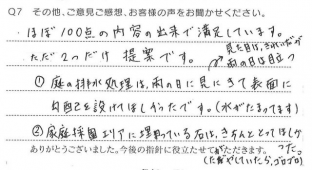 Q7 その他、ご意見ご感想、お客様の声をお聞かせください。
ほぼ100点の内容の出来で満足しています。
ただ2つだけ 提案です。
見た目は、きれいだが
雨の日は目立つ
① 庭の排水処理は、雨の日に見にきて表面に
勾配を設けてほしかったです。(水がたまってます)
② 家庭採園エリアに埋まっている石は、きちんととってほしか
った
ありがとうございました。今後の指針に役立たせていただきます。
(たがやしていたら、ゴロゴロ